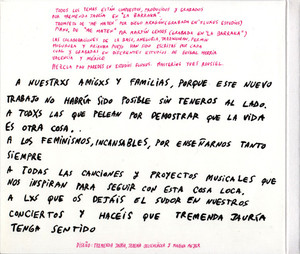 TODOS LOS TEMAS ESTÁN COMPUESTOS, PRODUCIDOS Y GRABADOS
POR TREMENDA JAURÍA EN "LA BARRAKA".
TROMPETA DE "ME MATEN" POR
PIANO, DE "ME MATEN" POR MARTÍN (GRABADA EN "LA BARRAKA")
LAS COLABORACIONES DE LA BASU, MAFALDA, FERMIN
MUGURUZA Y
VALENCIA Y MÉXICO
A NUESTRXS AMIGXS Y FAMILIAS, PORQUE ESTE NUEVO
TRABAJO NO HABRÍA SIDO POSIBLE SIN TENEROS AL LADO.
A TODXS LAS QUE PELEAN POR DEMOSTRAR QUE LA VIDA
ES OTRA COSA..
A LOS FEMINISMOS, INCANSABLES, POR ENSEÑARNOS TANTO
SIEMPRE
A TODAS LAS CANCIONES Y PROYECTOS MUSICALES QUE
NOS INSPIRAN PARA SEGUIR CON ESTA COSA LOCA.
A LXS QUE OS DEJÁIS EL SUDOR EN NUESTROS
CONCIERTOS Y HACÉIS QUE TREMENDA JAURÍA
TENGA SENTIDO
DISEÑO: TREMENDA JAURÍA,